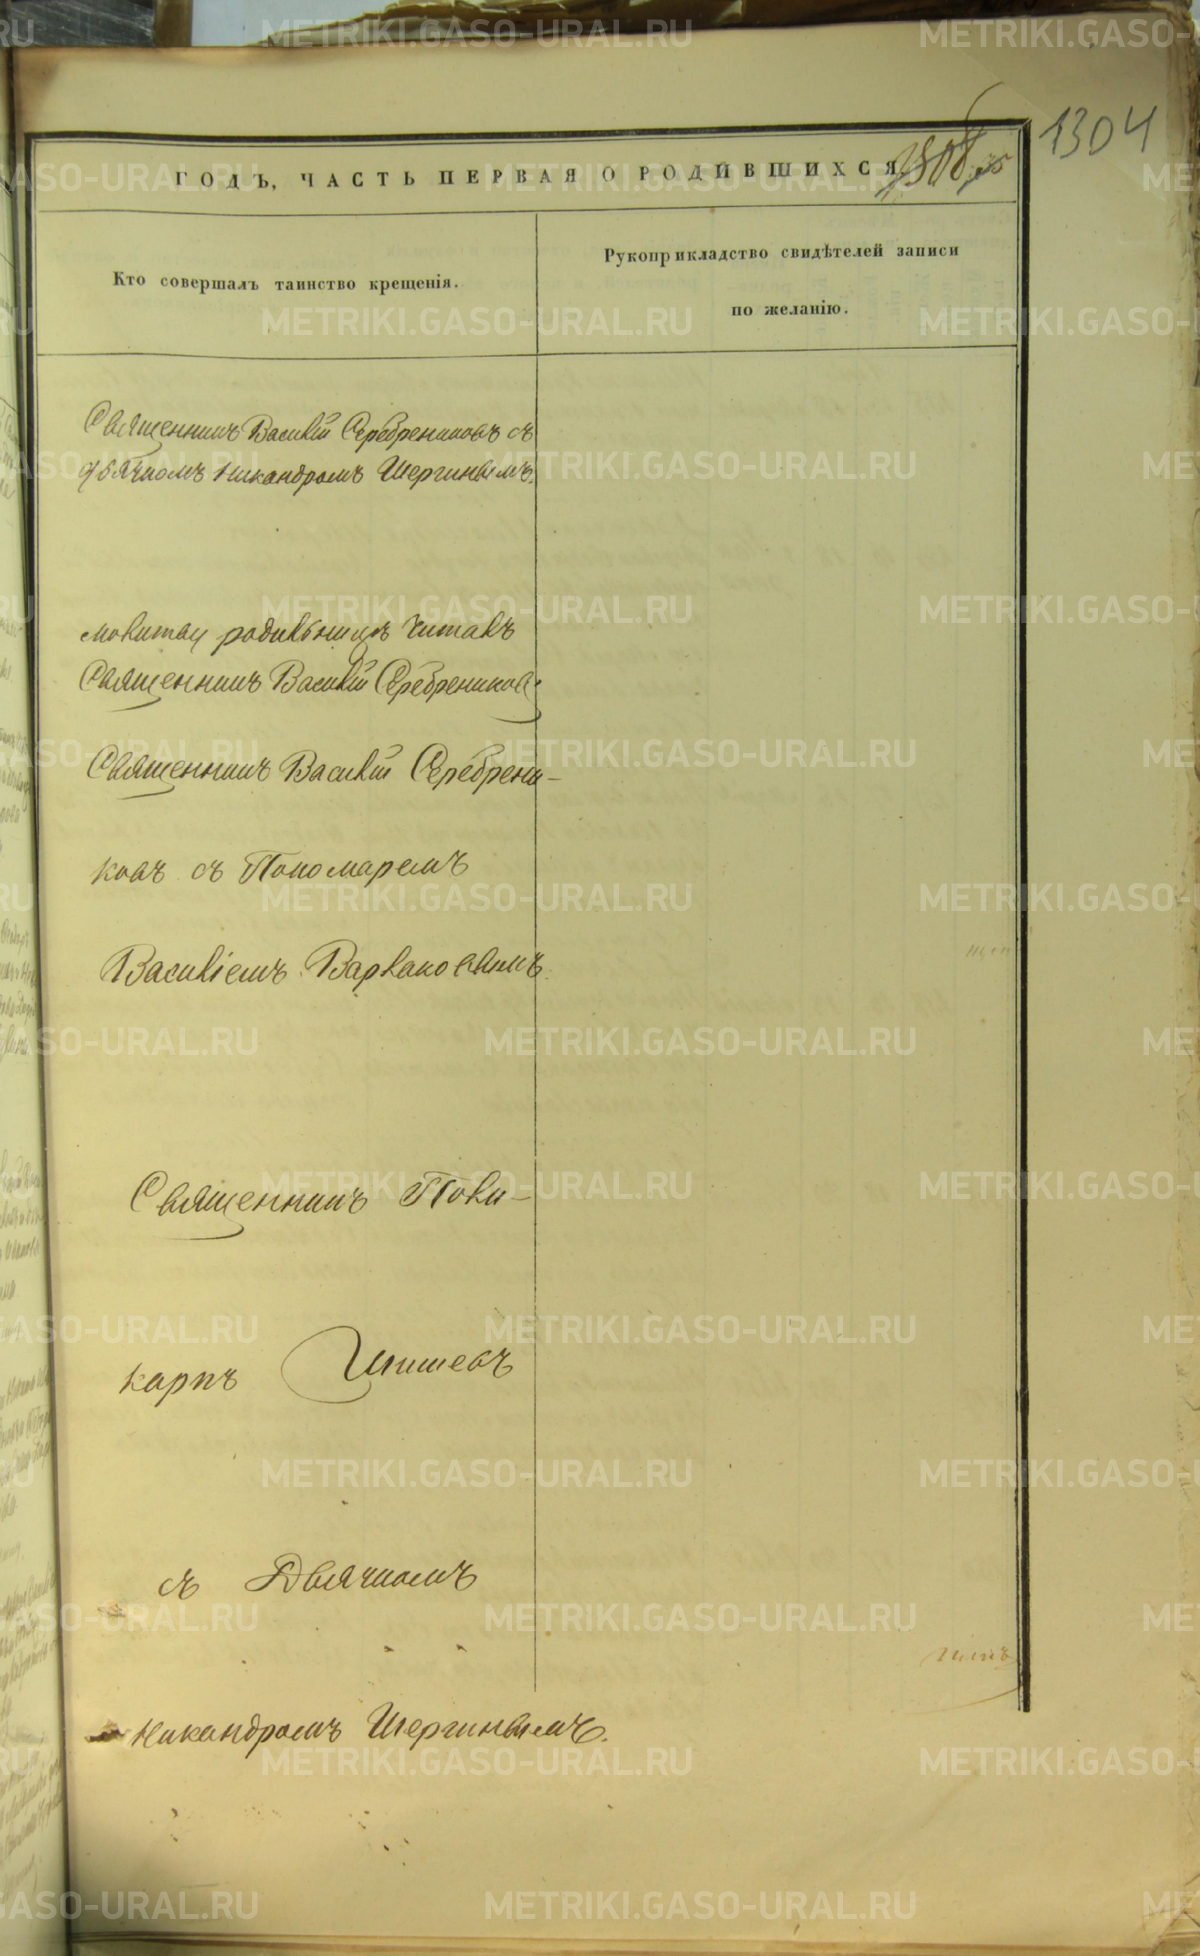 1304
ГОДЪ, ЧАСТЬ ПЕРВАЯ О РОДИВШИХСЯ
Кто совершалъ таинство крещенія.
Рукоприкладство свидѣтелей записи
по желанію.
Священникъ Василій Серебрениковъ съ
дьячкомъ Никандромъ Шергинымъ.
молитвы родильницѣ читалъ
Священникъ Василій Серебрениковъ
Священникъ Василій Серебрени-
ковъ съ Пономаремъ
Василіемъ Варлаковымъ.
Священникъ Поли-
карпъ Шишевъ
съ Дьячкомъ
Никандромъ Шергинымъ.
METRIKI.GASO-URAL.RU